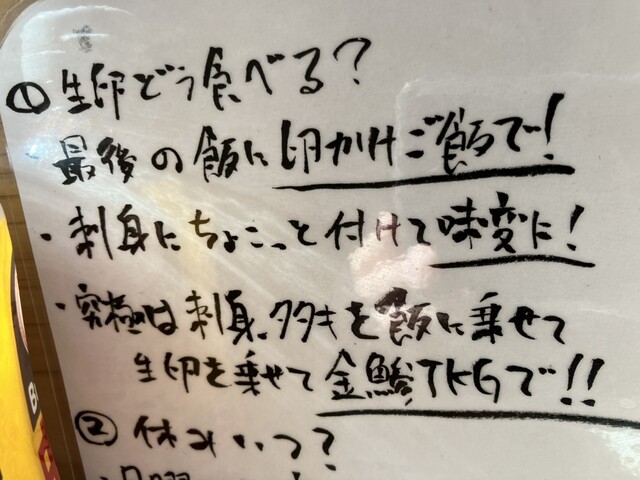 ① 生卵どう食べる?
・最後の飯に卵かけご飯で!
・刺身にちょこっと付けて味変に!
・究極は刺身、タタキを飯に乗せて
生卵を乗せて金鯵TKGで!!
② 休みいつ?